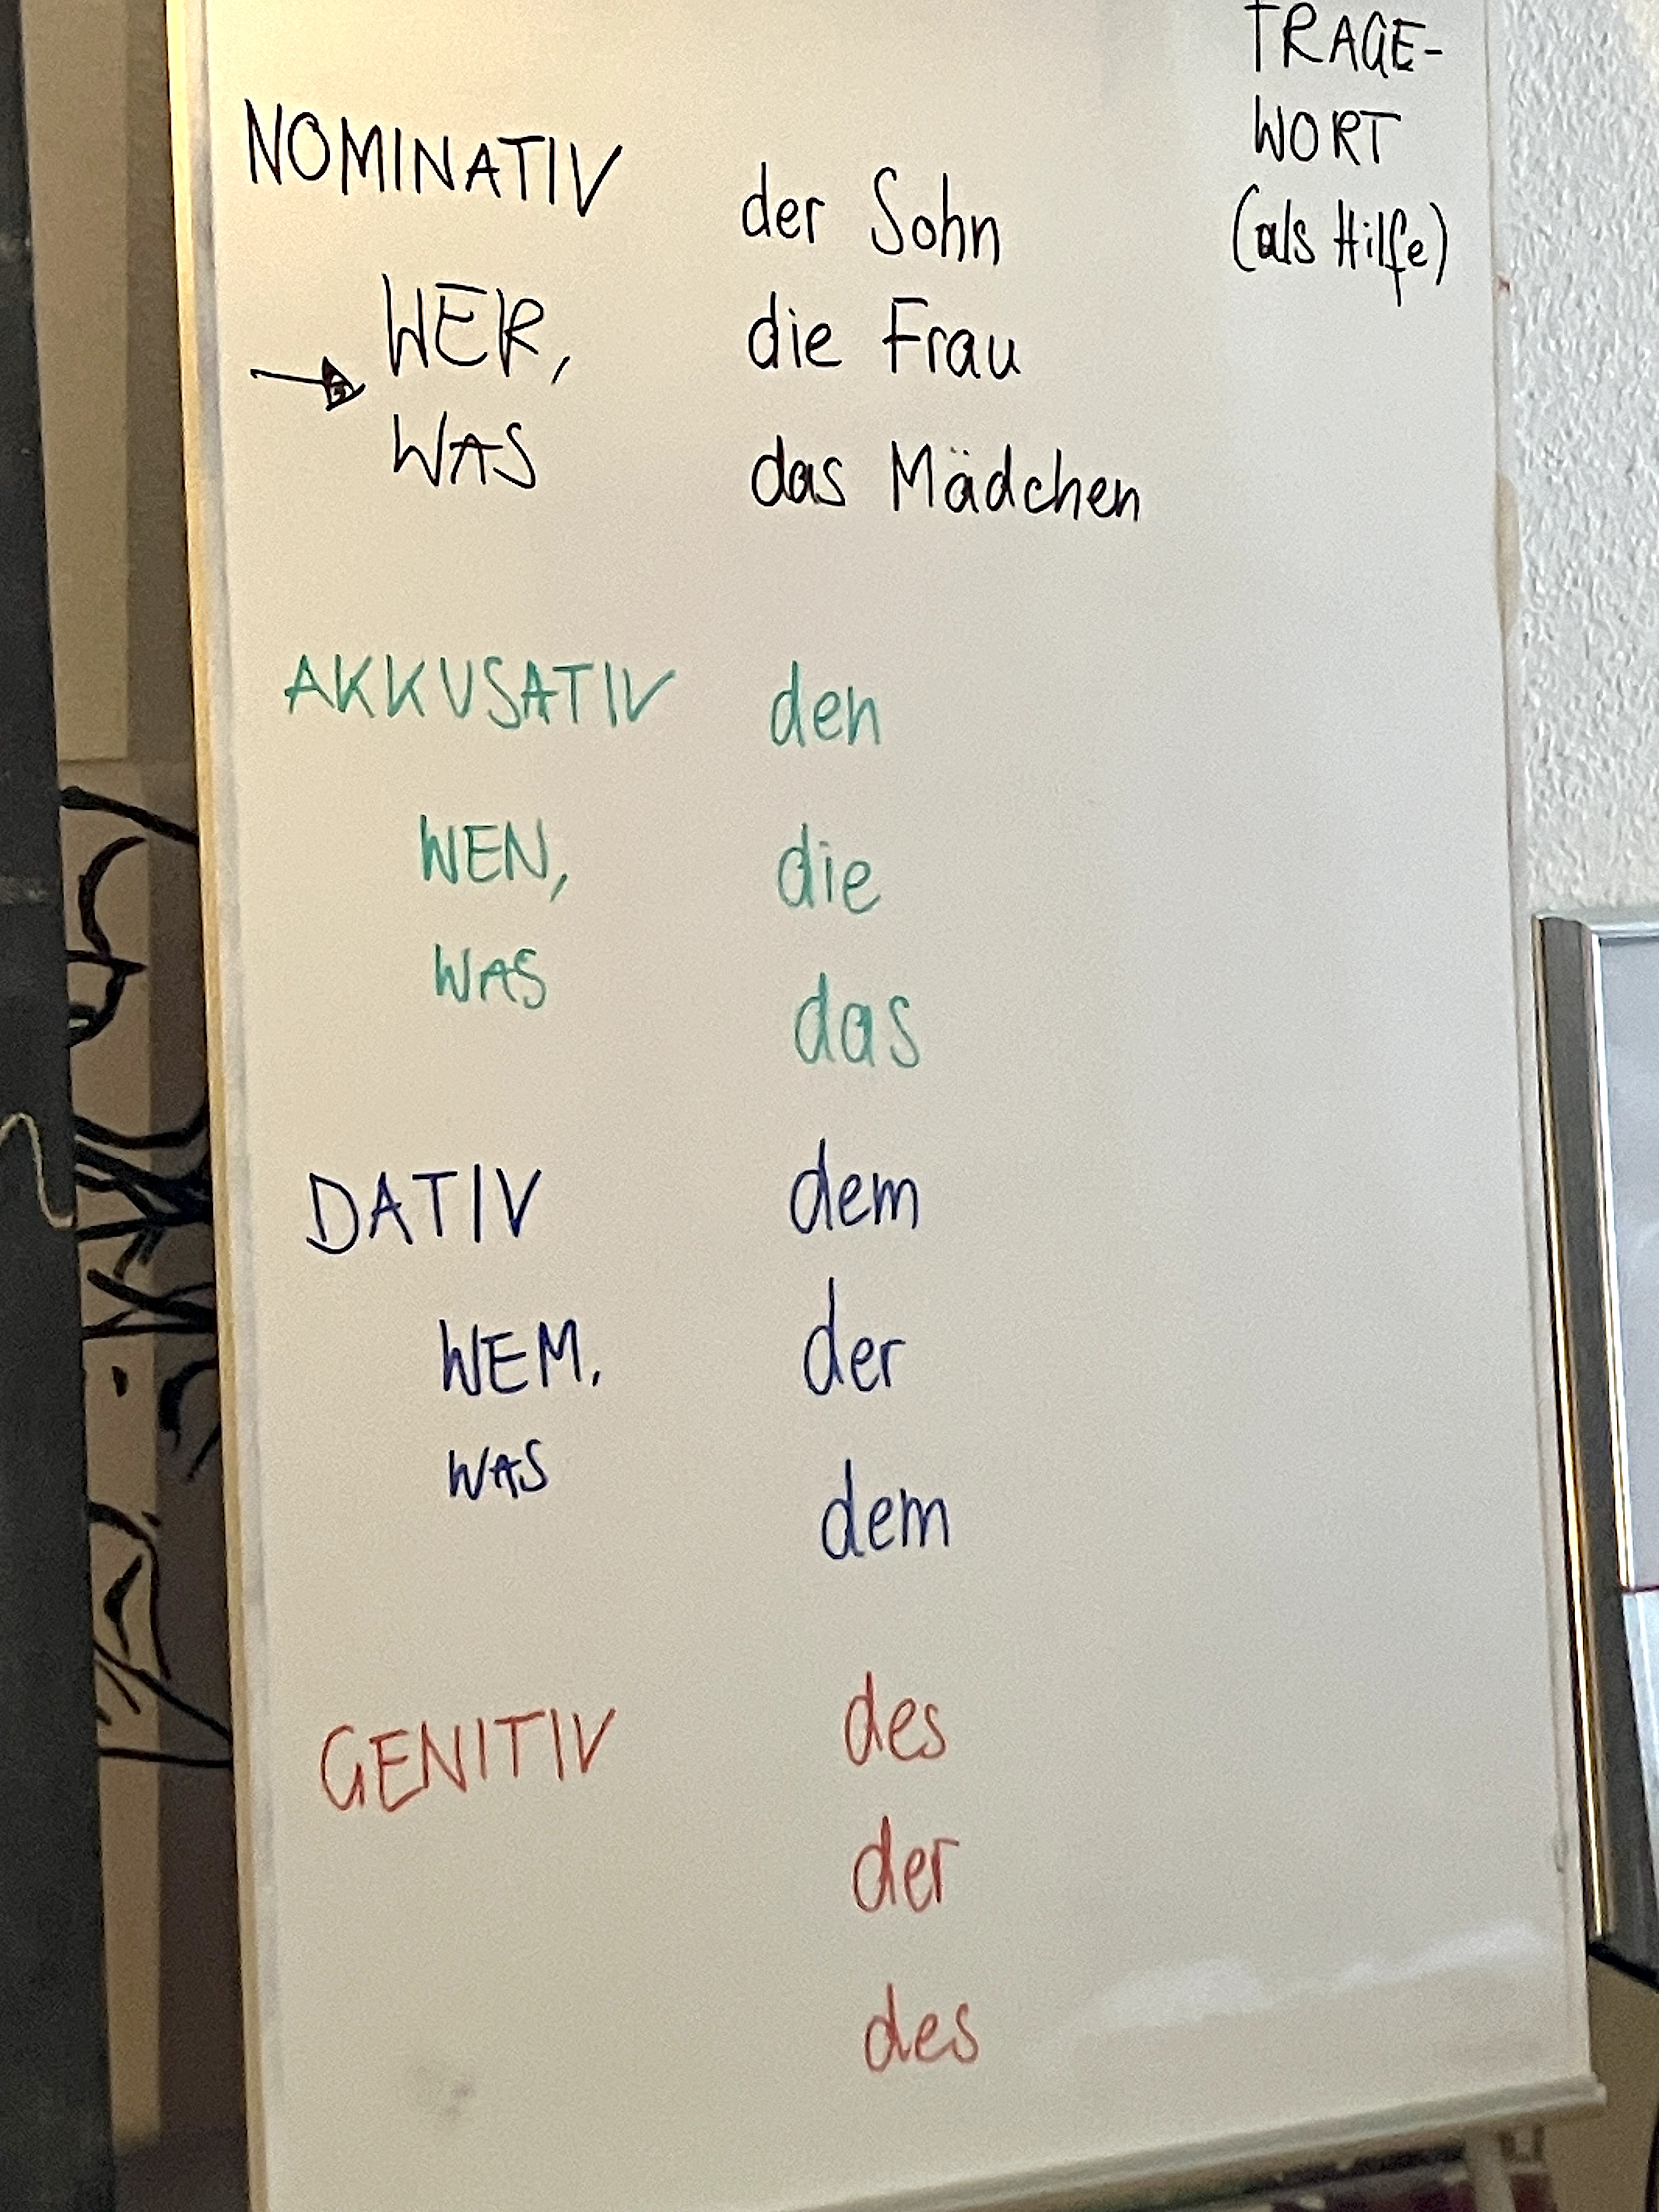 FRAGE-
WORT
(als Hilfe)
NOMINATIV der Sohn
WER, die Frau
WAS das Mädchen
AKKUSATIV den
WEN, die
WAS das
DATIV dem
WEM, der
WAS dem
GENITIV des
der
des